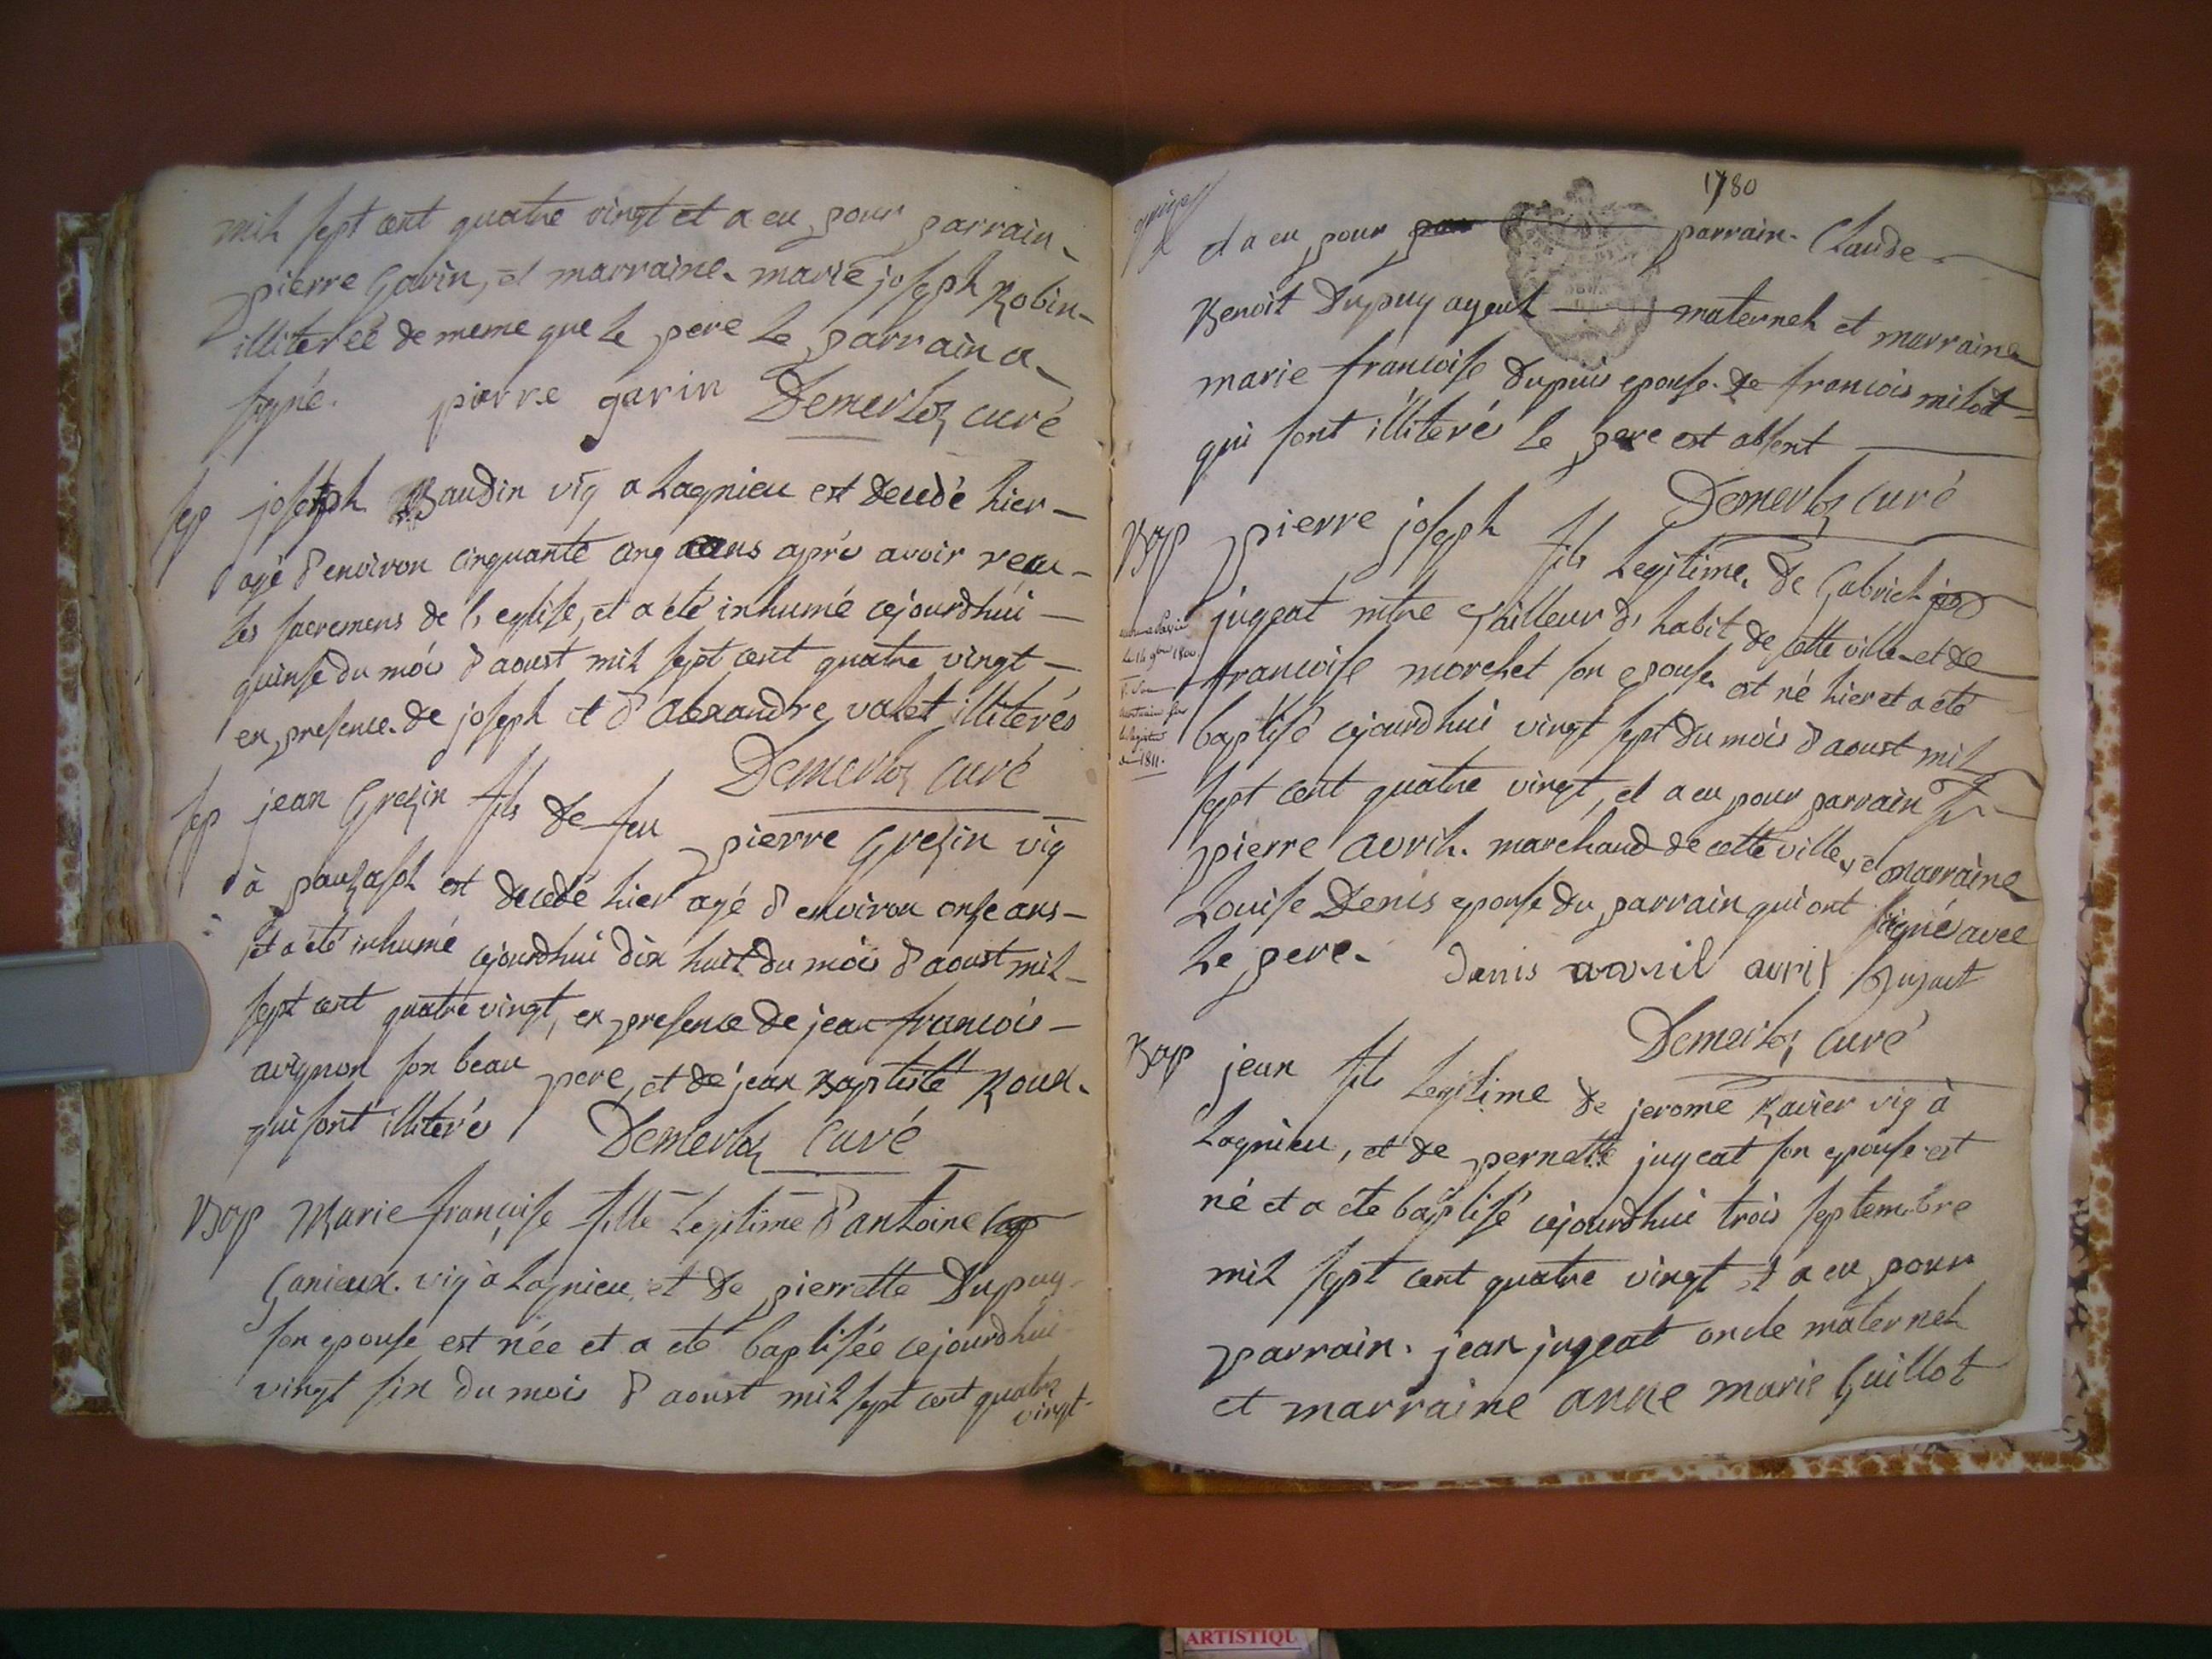 mil sept cent quatre vingt et a eu pour parrain
pierre Garin, et marraine marie joseph Robin
illiterée de meme que le pere le parrain a
signé. pierre garin Demerloz curé
sep joseph Baudin vig a Lagnieu est decedé hier
agé d'environ cinquante cinq ans aprés avoir recu
les sacremens de l'eglise, et a été inhumé cejourdhui
quinse du mois d'aoust mil sept cent quatre vingt
en presence de joseph et d'alexandre valet illiterés
Demerloz curé
sep jean Grezin fils de feu pierre Grezin vig
à est decedé hier agé d'environ onse ans
et a été inhumé cejourdhui dix huit du mois d'aoust mil
sept cent quatre vingt, en presence de jean francois
avignon son beau pere, et de jean Baptiste Roux
qui sont illiterés Demerloz Curé
Bap Marie françoise fille Legitime d'antoine
Ganieux vig à Lagnieu et de pierrette Dupuy
son epouse est née et a eté baptisée cejourdhui
vingt six du mois d'aoust mil sept cent quatre
vingt
1780
et a eu pour parrain Claude
Benoit Dupuy ayeul maternel et marraine
marie francoise dupuis epouse de francois milot
qui sont illiterés le pere est absent
Demerloz curé
Bap pierre joseph fils Legitime de Gabriel
jugeat mtre tailleur d'habit de cette ville et de
francoise morelet son epouse est né hier et a été
baptisé cejourdhui vingt sept du mois d'aoust mil
sept cent quatre vingt, et a eu pour parrain
pierre avril marchand de cette ville, et marraine
Louise Denis epouse du parrain qui ont signé avec
le pere. Denis avril avril jujact
le 14 9bre 1800
1811
Demerloz curé
Bap jean fils Legitime de jerome Ravier vig à
Lagnieu, et de pernette jugeat son epouse est
né et a eté baptisé cejourdhui trois septembre
mil sept cent quatre vingt et a eu pour
parrain jean jugeat oncle maternel
et marraine anne marie Guillot
ARTISTIQU